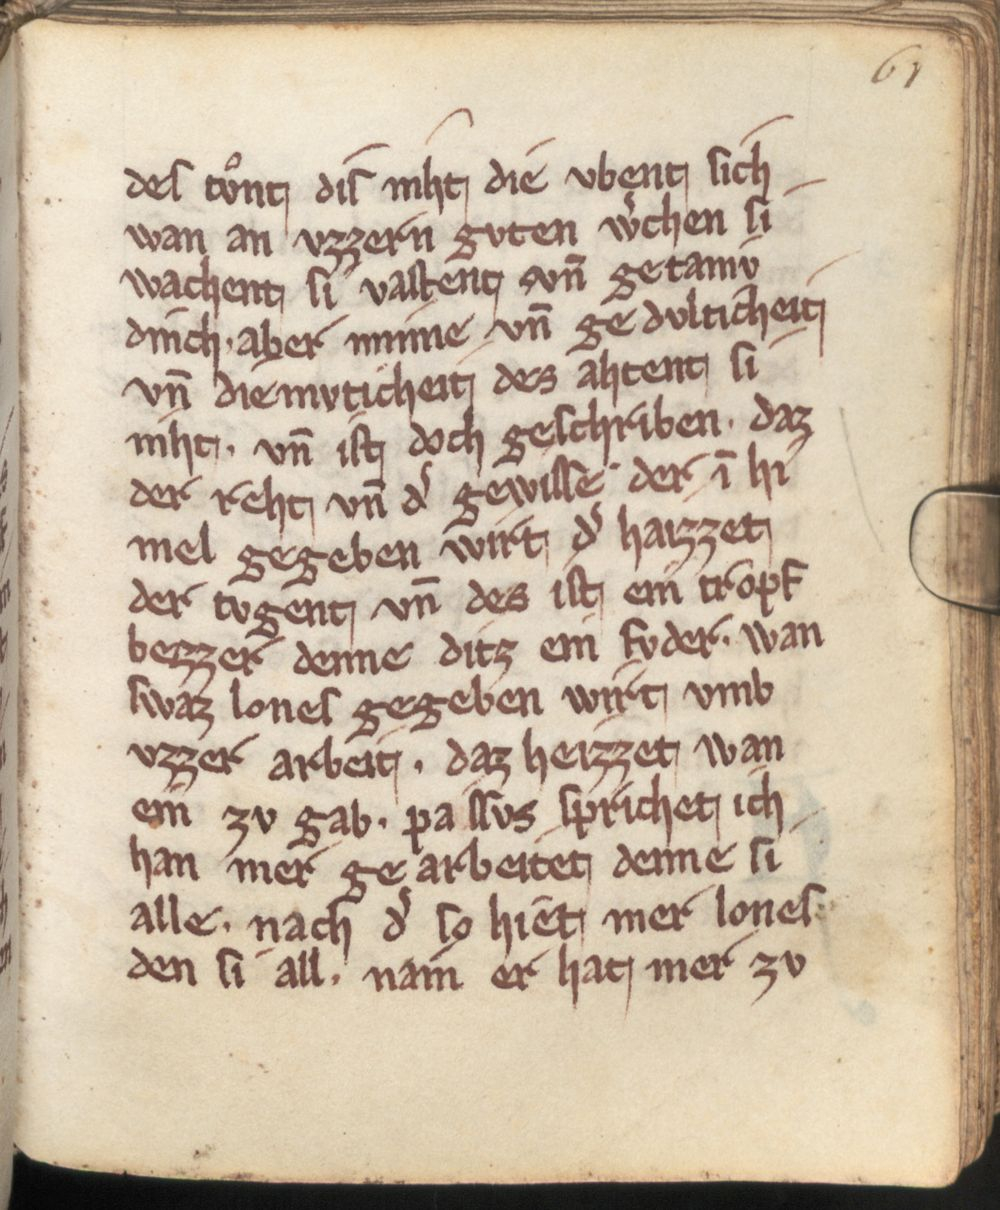 61
des tv̊nt dis niht die vbent sich
wan an vzzern gvten w̓chen si
wachent si vastent vn̄ getamv
dinch · aber minne vn̄ gedvlticheit
vn̄ diemvticheit des ahtent si
niht · vn̄ ist doch geschriben · daz
der reht vn̄ d̓ gewisse der ī hi
mel gegeben wirt d̓ haizzet
der tvgent vn̄ des ist ein tropf
bezzer denne ditz ein fvder · wan
swaz lones gegeben wirt vmb
vzzer arbeit · daz heizzet wan
ein zv gab · passvs sprichet ich
han mer gearbeitet denne si
alle · nach d̓ so hiēt mer lones
den si all · nain er hat mer zv